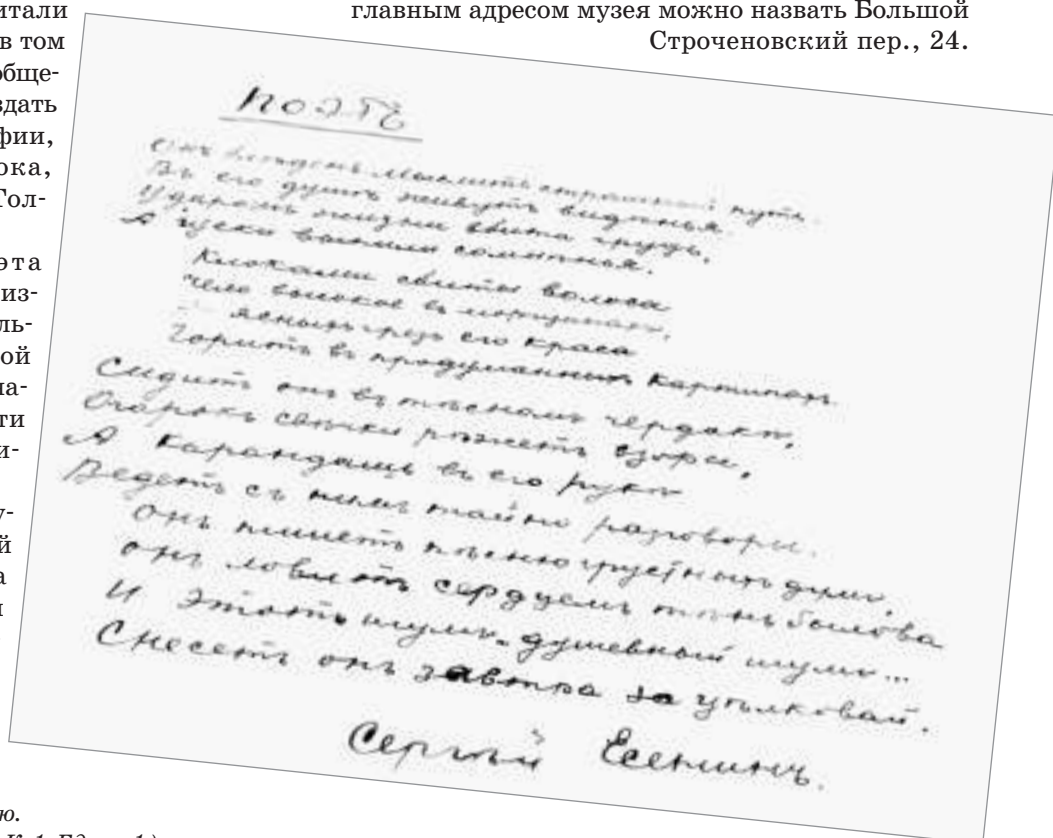 итали
в том
обще-
здать
фии,
ока,
Гол-
эта
из-
ль-
ой
па-
ти
и-
у-
й
а
главным адресом музея можно назвать Большой
Строченовский пер., 24.
ПОЭТЪ
Онъ блѣденъ. Мыслитъ страшный путь.
Въ его душѣ живутъ видѣнья.
Ударомъ жизни вбита грудь,
А щеки выпили сомнѣнья.
Клоками сбиты волоса
Чело высокое въ морщинахъ,
ясныхъ грезъ его краса
Горитъ въ продуманныхъ картинахъ.
Сидитъ онъ въ тѣсномъ чердакѣ,
Огарокъ свѣчки рѣжетъ взоры,
А карандашъ въ его рукѣ
Ведетъ съ нимъ тайно разговоры.
Онъ пишетъ пѣсню грустныхъ думъ,
Онъ ловитъ сердцемъ тѣнь былова
И этотъ шумъ.. душевный шумъ...
Снесетъ онъ завтра за цѣлковай.
Сергѣй Есенинъ.
ю.